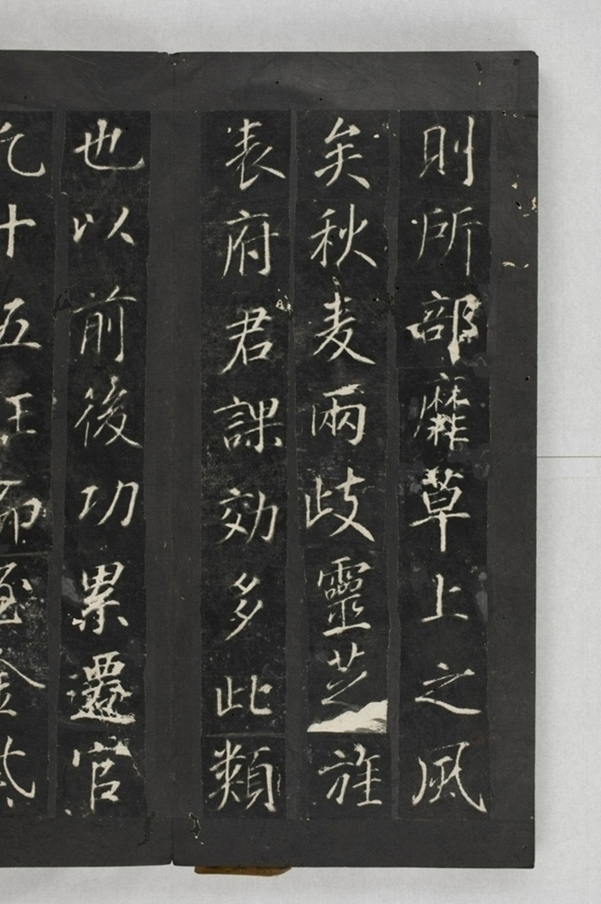 則所部靡草上之風
矣秋麦兩歧靈芝旌
表府君課効多此類
也以前後功累遷官
十五